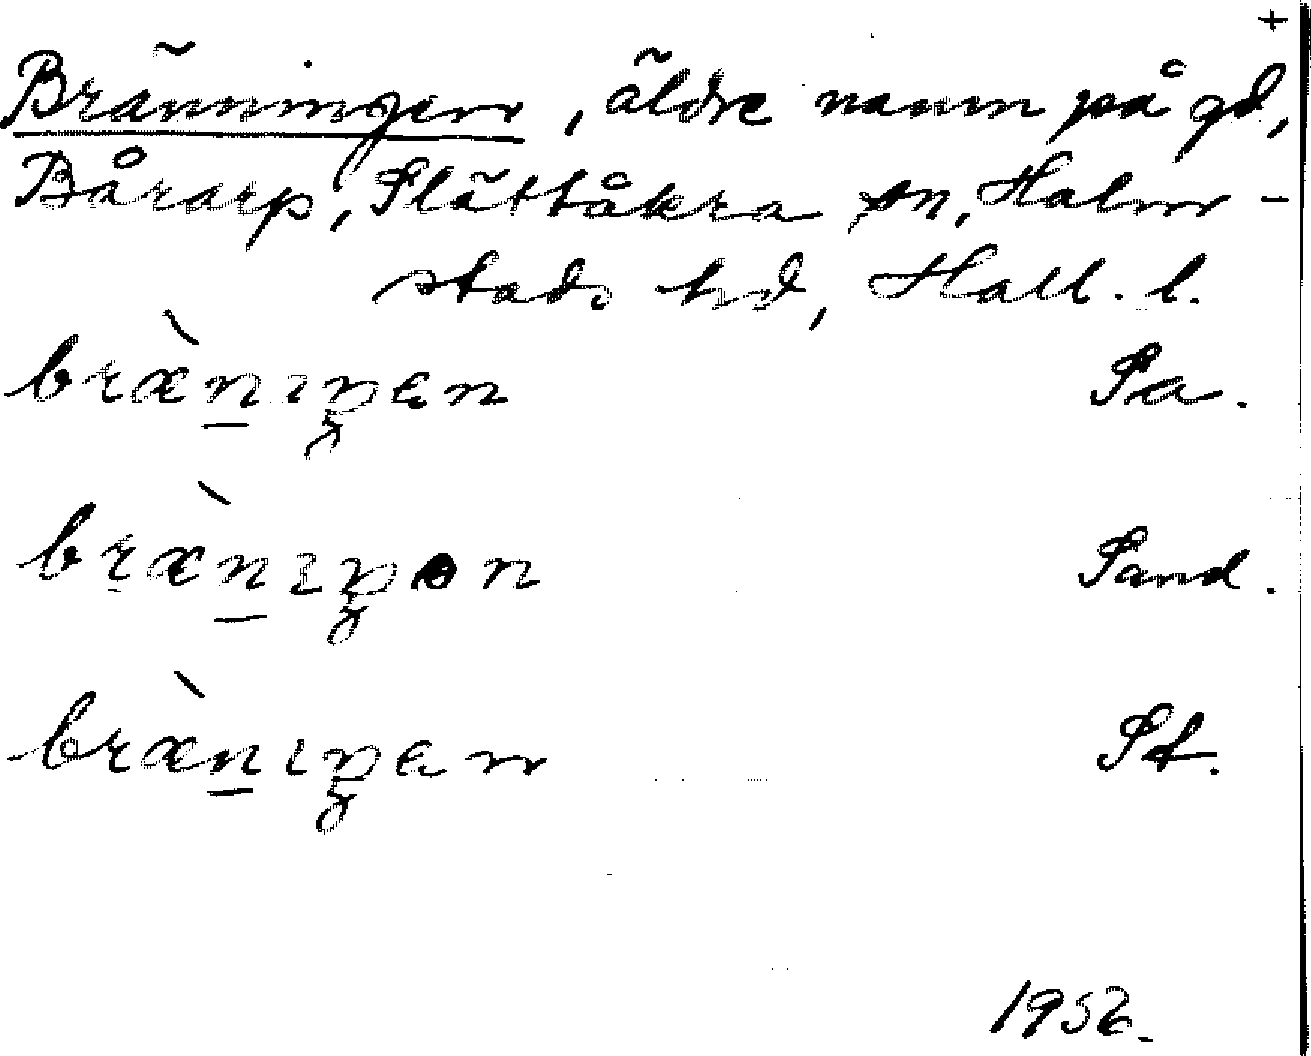 +
Bränningen, äldre namn på gd,
Bårarp, Slättåkra sn, Halm-
stads hd, Hall. l.
bræ̀nıŋen Sa.
bræ̀nıŋen Sand.
bræ̀nıŋen St.
1952.